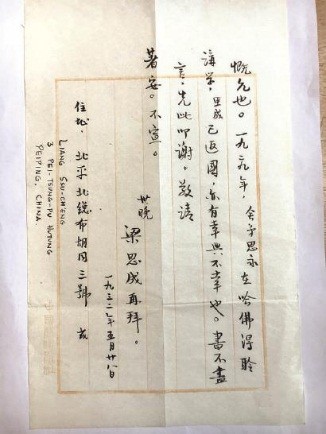 慨允也。一九二九年，舍弟思永在哈佛得聆
講學，思成已返國，亦有幸與不幸也。書不盡
言，先此叩謝，敬請
著安。不宣。
世晚
梁思成再拜。
一九三二年五月廿八日
住址，北平北總布胡同三號 或
LIANG SSU-CHENG
3 PEI-TSUNG-PU HUTUNG
PEIPING, CHINA